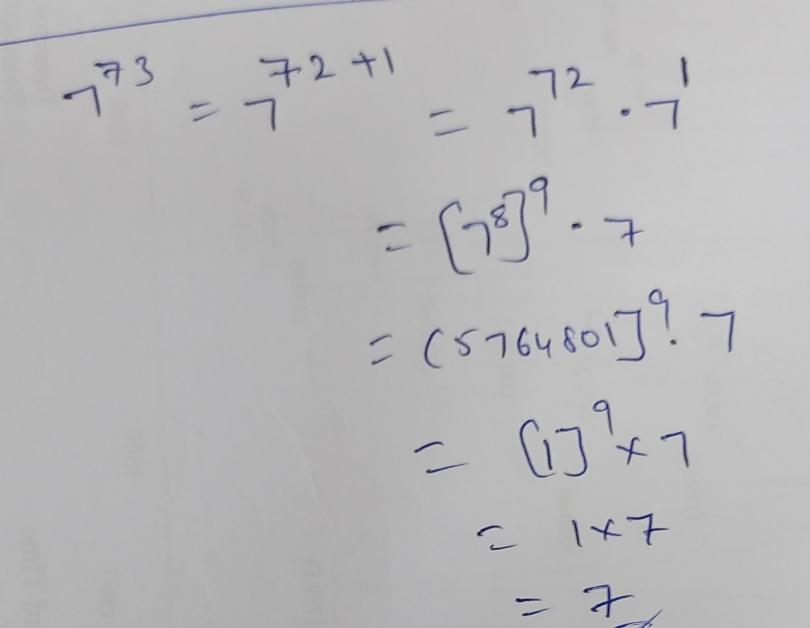 7^73 = 7^72+1 = 7^72 · 7^1
= [7^8]^9 · 7
= (5764801]^9 · 7
= [1]^9 × 7
= 1×7
= 7